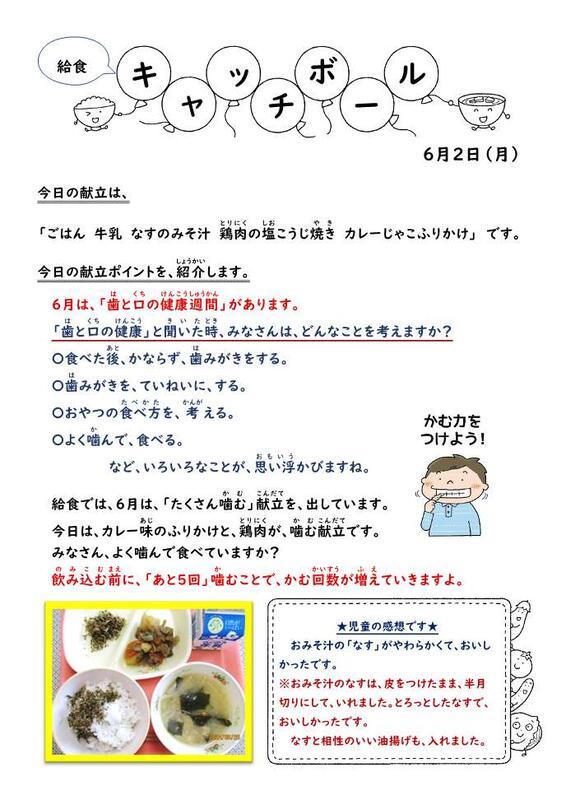 給食
キャッチボール
6月2日(月)
今日の献立は、
「ごはん 牛乳 なすのみそ汁 鶏肉の塩こうじ焼き カレーじゃこふりかけ」 です。
今日の献立ポイントを、紹介します。
6月は、「歯と口の健康週間」があります。
「歯と口の健康」と聞いた時、みなさんは、どんなことを考えますか?
○食べた後、かならず、歯みがきをする。
○歯みがきを、ていねいに、する。
○おやつの食べ方を、考える。
○よく噛んで、食べる。
など、いろいろなことが、思い浮かびますね。
かむ力を
つけよう!
給食では、6月は、「たくさん噛む」献立を、出しています。
今日は、カレー味のふりかけと、鶏肉が、噛む献立です。
みなさん、よく噛んで食べていますか?
飲み込む前に、「あと5回」噛むことで、かむ回数が増えていきますよ。
★児童の感想です★
おみそ汁の「なす」がやわらかくて、おいし
かったです。
※おみそ汁のなすは、皮をつけたまま、半月
切りにして、いれました。とろっとしたなすで、
おいしかったです。
なすと相性のいい油揚げも、入れました。